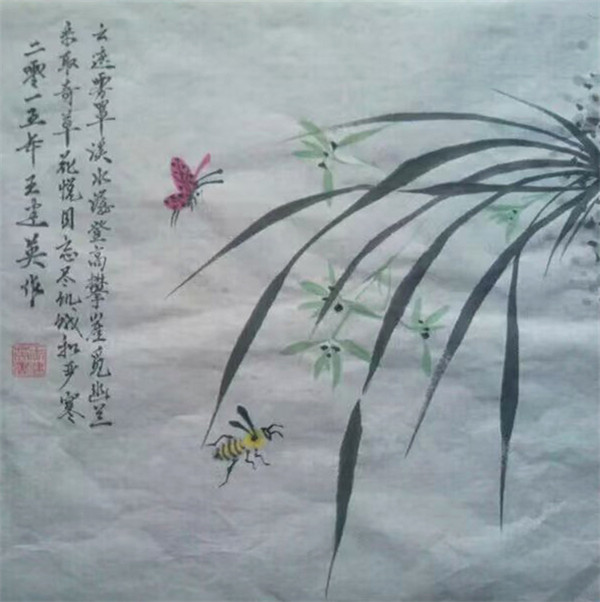 云遮雾罩淡水登高攀崖觅幽兰
采取奇草花悦目忘尽饥饿和寒
二零一五年王建英作